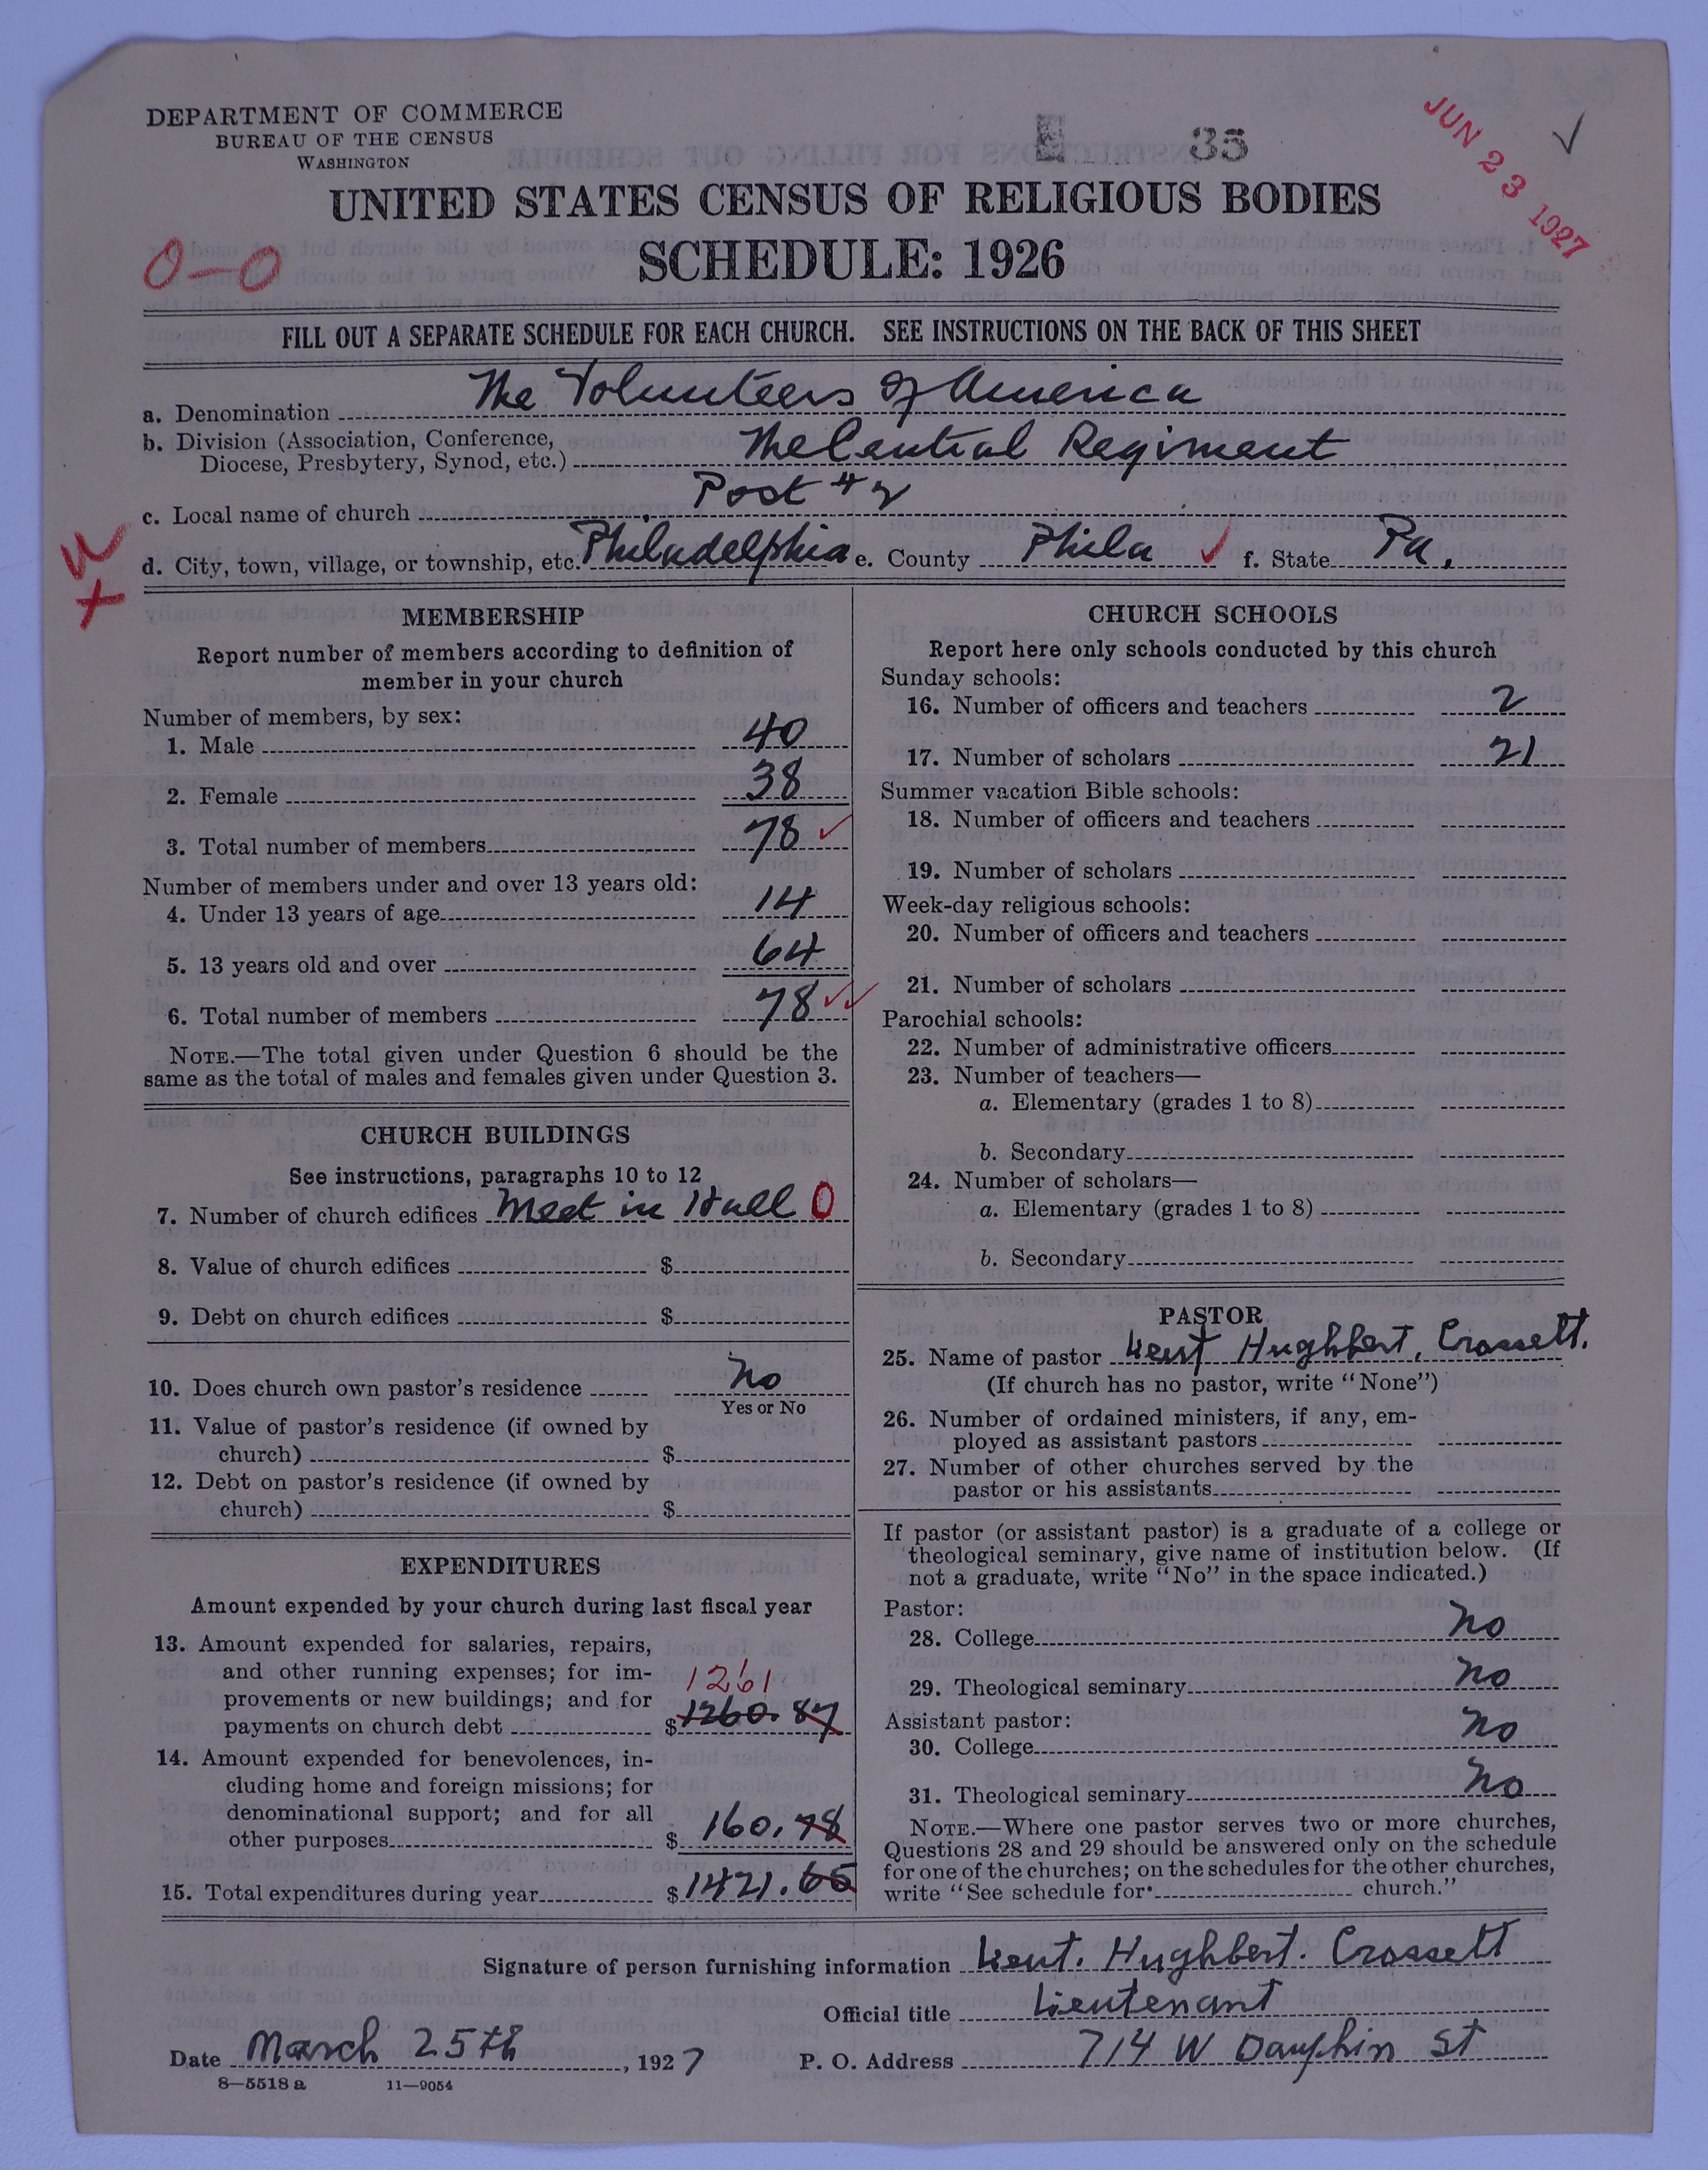 DEPARTMENT OF COMMERCE
BUREAU OF THE CENSUS
WASHINGTON
E 35
JUN 23 1927
UNITED STATES CENSUS OF RELIGIOUS BODIES
SCHEDULE: 1926
0-0
FILL OUT A SEPARATE SCHEDULE FOR EACH CHURCH. SEE INSTRUCTIONS ON THE BACK OF THIS SHEET
a. Denomination The Volunteers of America
b. Division (Association, Conference,
Diocese, Presbytery, Synod, etc.) The Central Regiment
c. Local name of church Post # 2
d. City, town, village, or township, etc. Philadelphia e. County Phila ✓ f. State Pa.
MEMBERSHIP
Report number of members according to definition of
member in your church
Number of members, by sex:
1. Male 40
2. Female 38
3. Total number of members 78 ✓
Number of members under and over 13 years old:
4. Under 13 years of age 14
5. 13 years old and over 64
6. Total number of members 78 ✓✓
NOTE.—The total given under Question 6 should be the
same as the total of males and females given under Question 3.
CHURCH BUILDINGS
See instructions, paragraphs 10 to 12
7. Number of church edifices Meet in Hall 0
8. Value of church edifices $
9. Debt on church edifices $
10. Does church own pastor's residence No
Yes or No
11. Value of pastor's residence (if owned by
church) $
12. Debt on pastor's residence (if owned by
church) $
EXPENDITURES
Amount expended by your church during last fiscal year
13. Amount expended for salaries, repairs,
and other running expenses; for im-
provements or new buildings; and for
payments on church debt $ 1260.87
1261
14. Amount expended for benevolences, in-
cluding home and foreign missions; for
denominational support; and for all
other purposes $ 160.78
15. Total expenditures during year $ 1421.65
CHURCH SCHOOLS
Report here only schools conducted by this church
Sunday schools:
16. Number of officers and teachers 2
17. Number of scholars 21
Summer vacation Bible schools:
18. Number of officers and teachers
19. Number of scholars
Week-day religious schools:
20. Number of officers and teachers
21. Number of scholars
Parochial schools:
22. Number of administrative officers
23. Number of teachers—
a. Elementary (grades 1 to 8)
b. Secondary
24. Number of scholars—
a. Elementary (grades 1 to 8)
b. Secondary
PASTOR
25. Name of pastor Lieut Hughbert. Crossett.
(If church has no pastor, write "None")
26. Number of ordained ministers, if any, em-
ployed as assistant pastors
27. Number of other churches served by the
pastor or his assistants
If pastor (or assistant pastor) is a graduate of a college or
theological seminary, give name of institution below. (If
not a graduate, write "No" in the space indicated.)
Pastor:
28. College No
29. Theological seminary No
Assistant pastor:
30. College No
31. Theological seminary No
NOTE.—Where one pastor serves two or more churches,
Questions 28 and 29 should be answered only on the schedule
for one of the churches; on the schedules for the other churches,
write "See schedule for church."
Signature of person furnishing information Lieut. Hughbert. Crossett
Official title Lieutenant
Date March 25th, 1927 P. O. Address 714 W Dauphin St
8—5518 a 11—9054